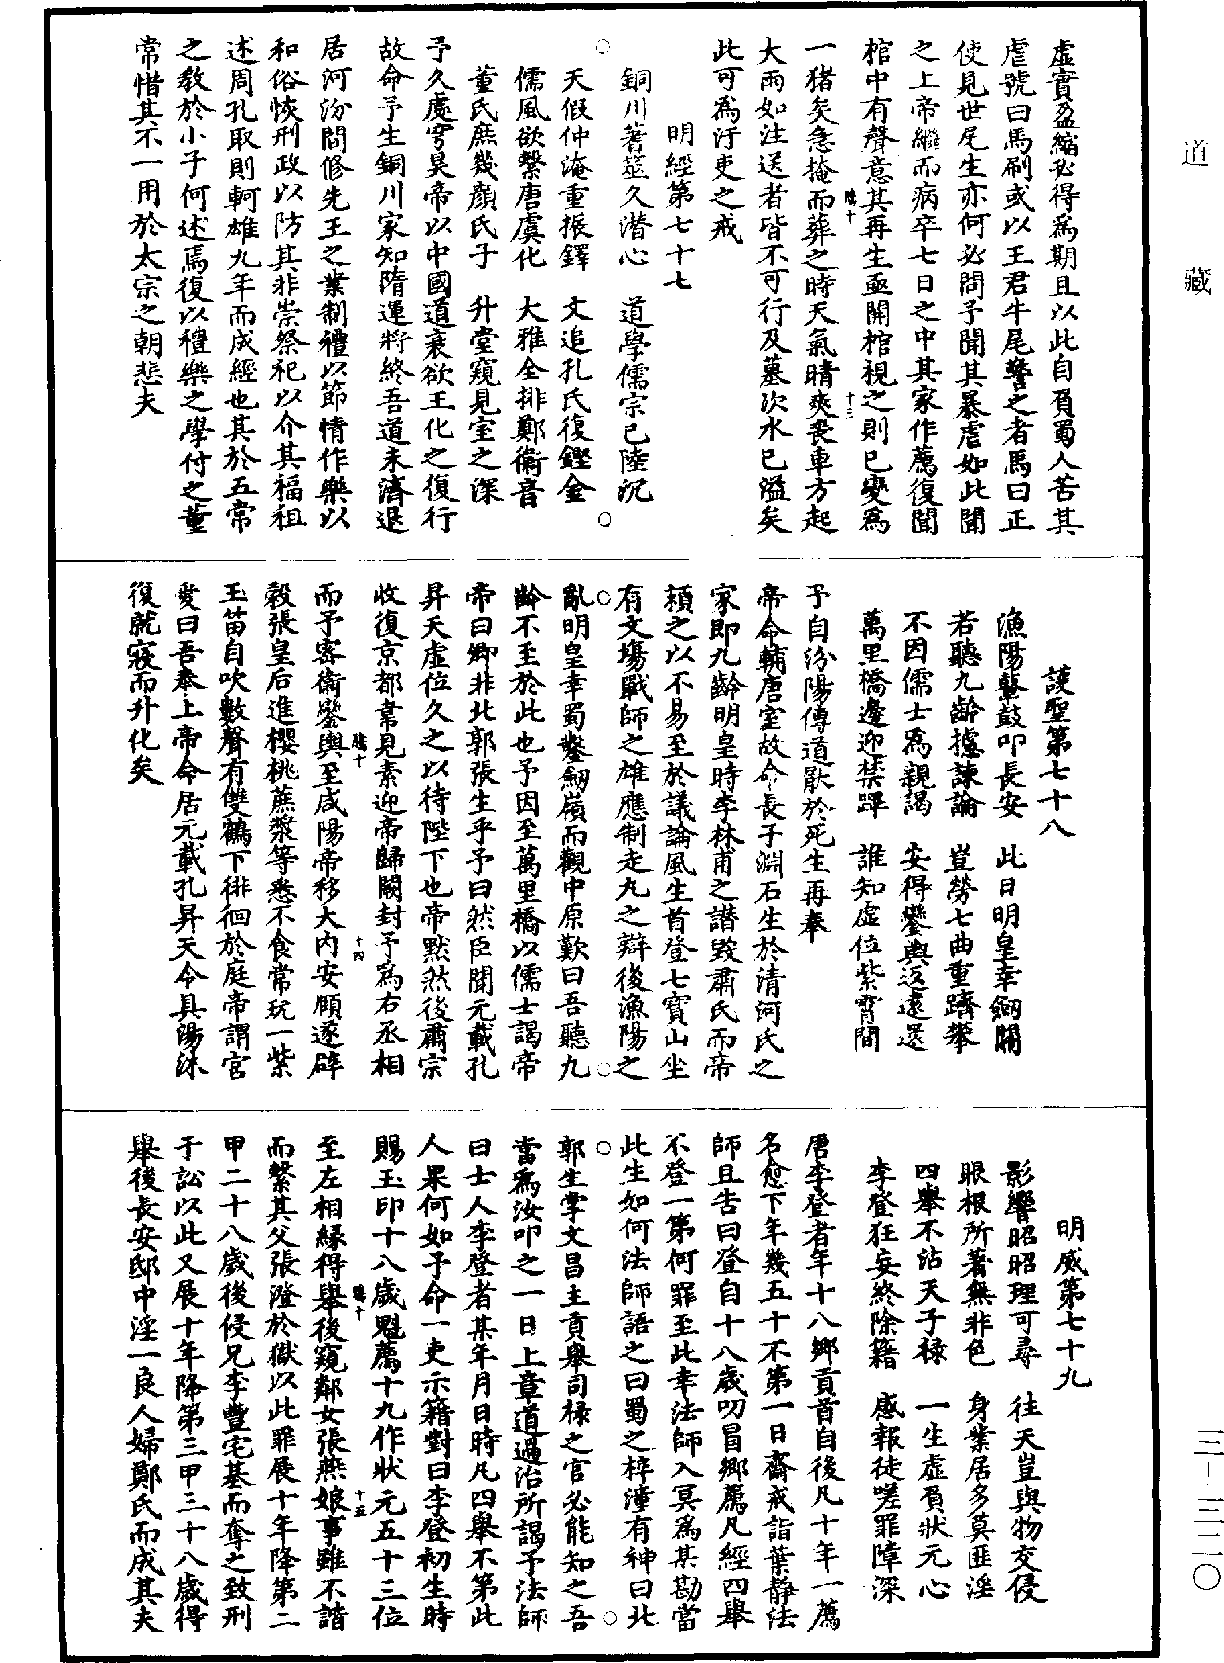 道藏
虛實盈縮必得為期且以此自負蜀人苦其
虐號曰馬刷或以王君牛尾警之者馬曰正
使見世尾生亦何必問予聞其暴虐如此聞
之上帝繼而病卒七日之中其家作薦復聞
棺中有聲意其再生亟開棺視之則已變為
一猪矣急掩而葬之時天氣晴爽喪車方起
大雨如注送者皆不可行及墓次水已溢矣
此可為汙吏之戒
明經第七十七
銅川著筮久潛心　道學儒宗已陸沉
天假仲淹重振鐸　文追孔氏復鏗金
儒風欲繫唐虞化　大雅全排鄭衛音
董氏庶幾顏氏子　升堂窺見室之深
予久處穹昊帝以中國道衰欲王化之復行
故命予生銅川家知隋運將終吾道未濟退
居河汾間修先王之業制禮以節情作樂以
和俗恢刑政以防其非崇祭祀以介其福祖
述周孔取則軻雄九年而成經也其於五常
之教於小子何述焉復以禮樂之學付之董
常惜其不一用於太宗之朝悲夫
護聖第七十八
漁陽鼙鼓叩長安　此日明皇幸劔關
若聽九齡攄諫論　豈勞七曲重躋攀
不因儒士為親謁　安得鑾輿返遠還
萬里橋邊迎禁蹕　誰知虛位紫霄間
予自汾陽傳道厭於死生再奉
帝命輔唐室故命長子淵石生於清河氏之
家即九齡明皇時李林甫之譖毀肅氏而帝
頼之以不易至於議論風生首登七寶山坐
有文塲戰師之雄應制走九之辯後漁陽之
亂明皇幸蜀鑿劔嶺而觀中原歎曰吾聽九
齡不至於此也予因至萬里橋以儒士謁帝
帝曰卿非北郭張生乎予曰然臣聞元載孔
昇天虛位久之以待陛下也帝默然後肅宗
收復京都韋見素迎帝歸闕封予為右丞相
而予密衛鑾輿至咸陽帝移大内安頤遂辟
穀張皇后進櫻桃蔗漿等悉不食常玩一紫
玉笛自吹數聲有雙鶴下徘徊於庭帝謂宮
愛曰吾奉上帝命居元載孔昇天令具湯沐
復就寢而升化矣
明威第七十九
影響昭昭理可尋　往天豈與物交侵
眼根所著無非色　身業居多莫匪淫
四舉不沾天子祿　一生虛負狀元心
李登狂妄終除籍　感報徒嗟罪障深
唐李登者年十八鄉貢首自後凡十年一薦
名愈下年幾五十不第一日齋戒詣葉靜法
師且告曰登自十八歲叨冒鄉薦凡經四舉
不登一第何罪至此幸法師入冥為某勘當
此生如何法師語之曰蜀之梓潼有神曰北
郭生掌文昌主貢舉司祿之官必能知之吾
當為汝叩之一日上章道過治所謁予法師
曰士人李登者某年月日時凡四舉不第此
人果何如予命一吏示籍對曰李登初生時
賜玉印十八歲魁薦十九作狀元五十三位
至左相緣得舉後窺鄰女張燕娘事雖不諧
而繫其父張澄於獄以此罪展十年降第二
甲二十八歲後侵兄李豐宅基而奪之致刑
于訟以此又展十年降第三甲三十八歲得
舉後長安邸中淫一良人婦鄭氏而成其夫
三-三二〇